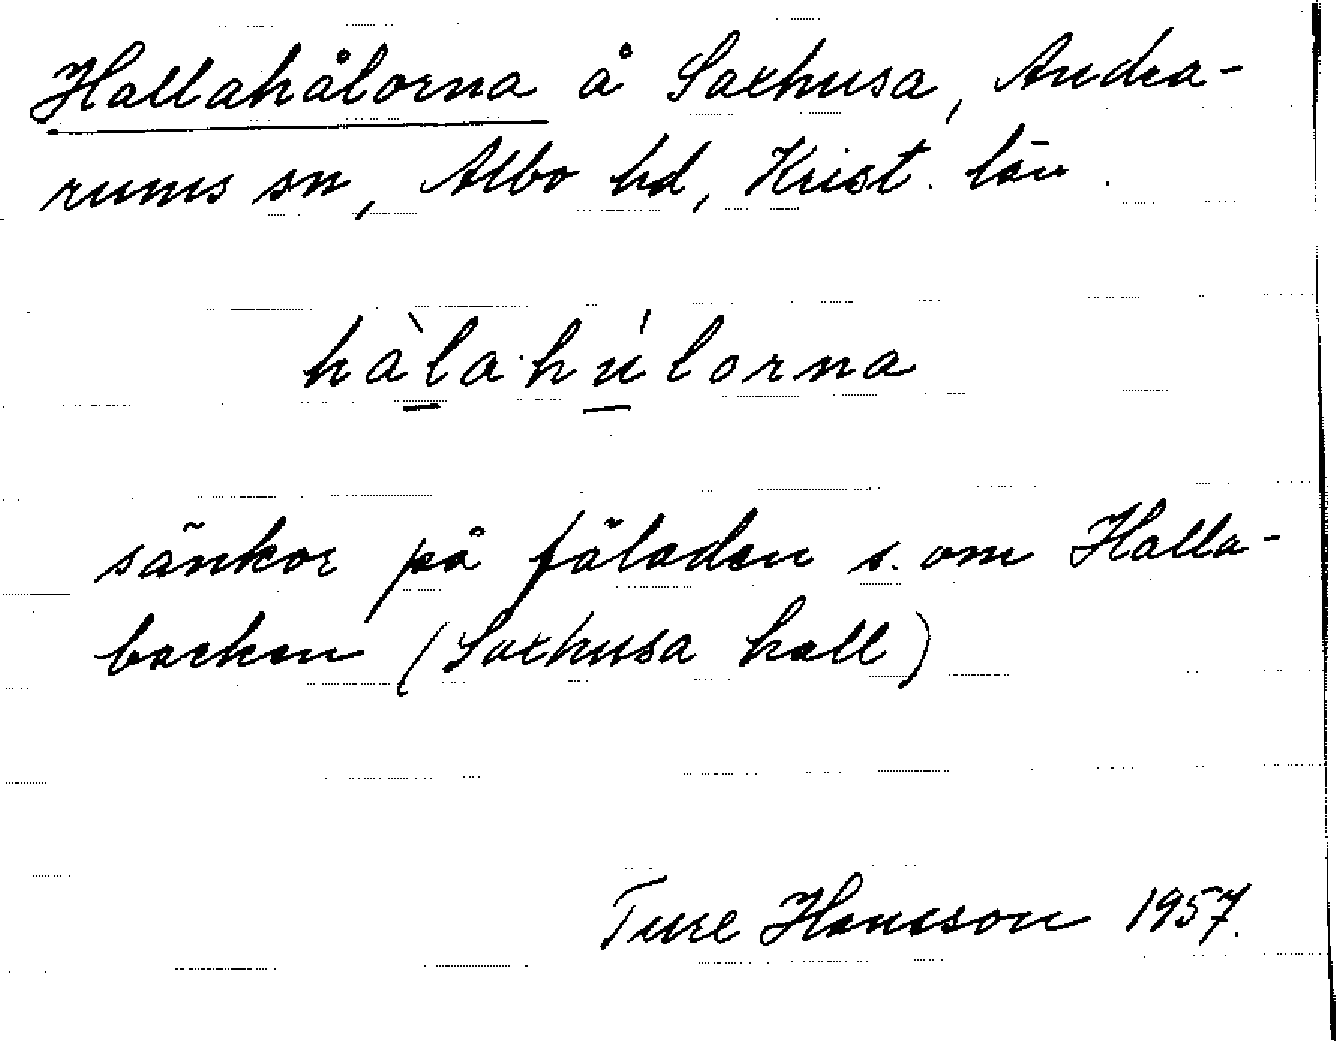 Hallahålorna å Saxhusa, Andra-
rums sn, Albo hd, Krist. län.
hàla·húlorna
sänkor på fäladen s. om Halla-
backen (Saxhusa hall)
Ture Hansson 1957.